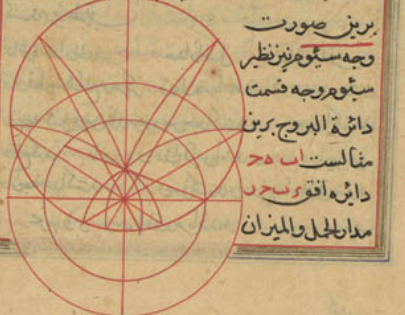 برین صورت
وجه سیوم نیز نظیر
سیوم وجه قسمت
دائرة البروج برین
مثالست اب ه ح
دایره افق ء ب ح د
مدار الحمل والمیزان